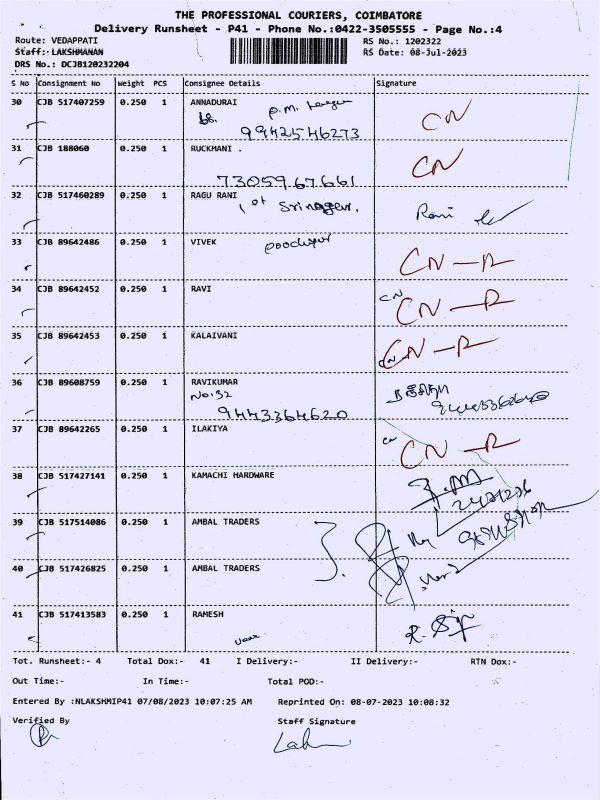 THE PROFESSIONAL COURIERS, COIMBATORE
Delivery Runsheet - P41 - Phone No.:0422-3505555 - Page No.:4
Route: VEDAPPATI RS No.: 1202322
Staff:-LAKSHMANAN RS Date: 08-Jul-2023
DRS No.: DCJB120232204
S No Consignment No Weight PCS Consignee Details Signature
30 CJB 517407259 0.250 1 ANNADURAI CN
P.M.
9942546273
31 CJB 188060 0.250 1 RUCKMANI . CN
7305967661
32 CJB 517460289 0.250 1 RAGU RANI Rani
1st Srinagar.
33 CJB 89642486 0.250 1 VIVEK CN-R
34 CJB 89642452 0.250 1 RAVI CN CN-R
35 CJB 89642453 0.250 1 KALAIVANI CN CN-R
36 CJB 89608759 0.250 1 RAVIKUMAR
No.32
9443364620
37 CJB 89642265 0.250 1 ILAKIYA CN CN-R
38 CJB 517427141 0.250 1 KAMACHI HARDWARE
39 CJB 517514086 0.250 1 AMBAL TRADERS
40 CJB 517426825 0.250 1 AMBAL TRADERS
41 CJB 517413583 0.250 1 RAMESH
Tot. Runsheet:- 4 Total Dox:- 41 I Delivery:- II Delivery:- RTN Dox:-
Out Time:- In Time:- Total POD:-
Entered By :NLAKSHMIP41 07/08/2023 10:07:25 AM Reprinted On: 08-07-2023 10:08:32
Verified By Staff Signature